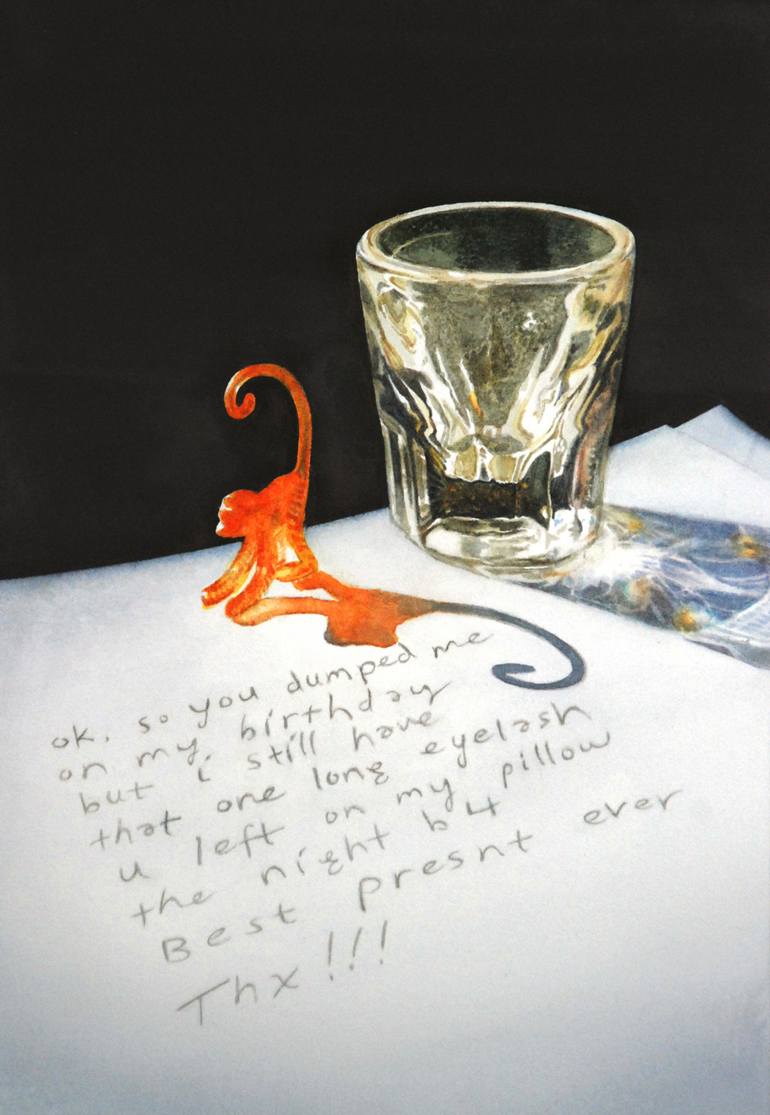 ok. so you dumped me
on my. birthday
but i still have
that one long eyelash
u left on my pillow
the night b4
Best presnt ever
Thx!!!